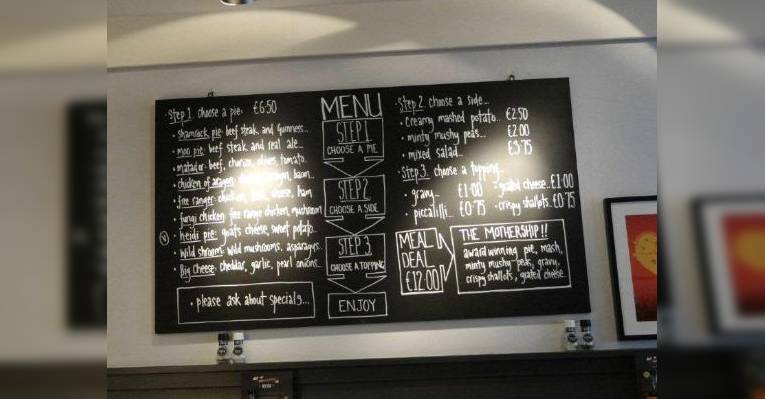 Step 1. choose a pie: £6.50
• shamrock pie: beef steak and Guinness...
• moo pie: beef steak and real ale...
• matador: beef, chorizo, olives, tomato..
• chicken of aragon: bacon...
• free ranger: chicken, cheese, ham
• fungi chicken: free range chicken, mushroom
(V) • heidi pie: goats cheese, sweet potato..
• Wild shroom: wild mushrooms, asparagus..
• Big Cheese: cheddar, garlic, pearl onions...
• please ask about specials...
MENU
STEP 1
CHOOSE A PIE
STEP 2
CHOOSE A SIDE
STEP 3
CHOOSE A TOPPING
ENJOY
Step 2. choose a side...
• Creamy mashed potato.. £2.50
• minty mushy peas... £2.00
• mixed salad... £3.75
Step 3. choose a topping...
• gravy... £1.00 • grated cheese.. £1.00
• piccalilli.. £0.75 • crispy shallots.. £0.75
MEAL
DEAL
£12.00
THE MOTHERSHIP!!
award winning pie, mash,
minty mushy peas, gravy,
crispy shallots, grated cheese.